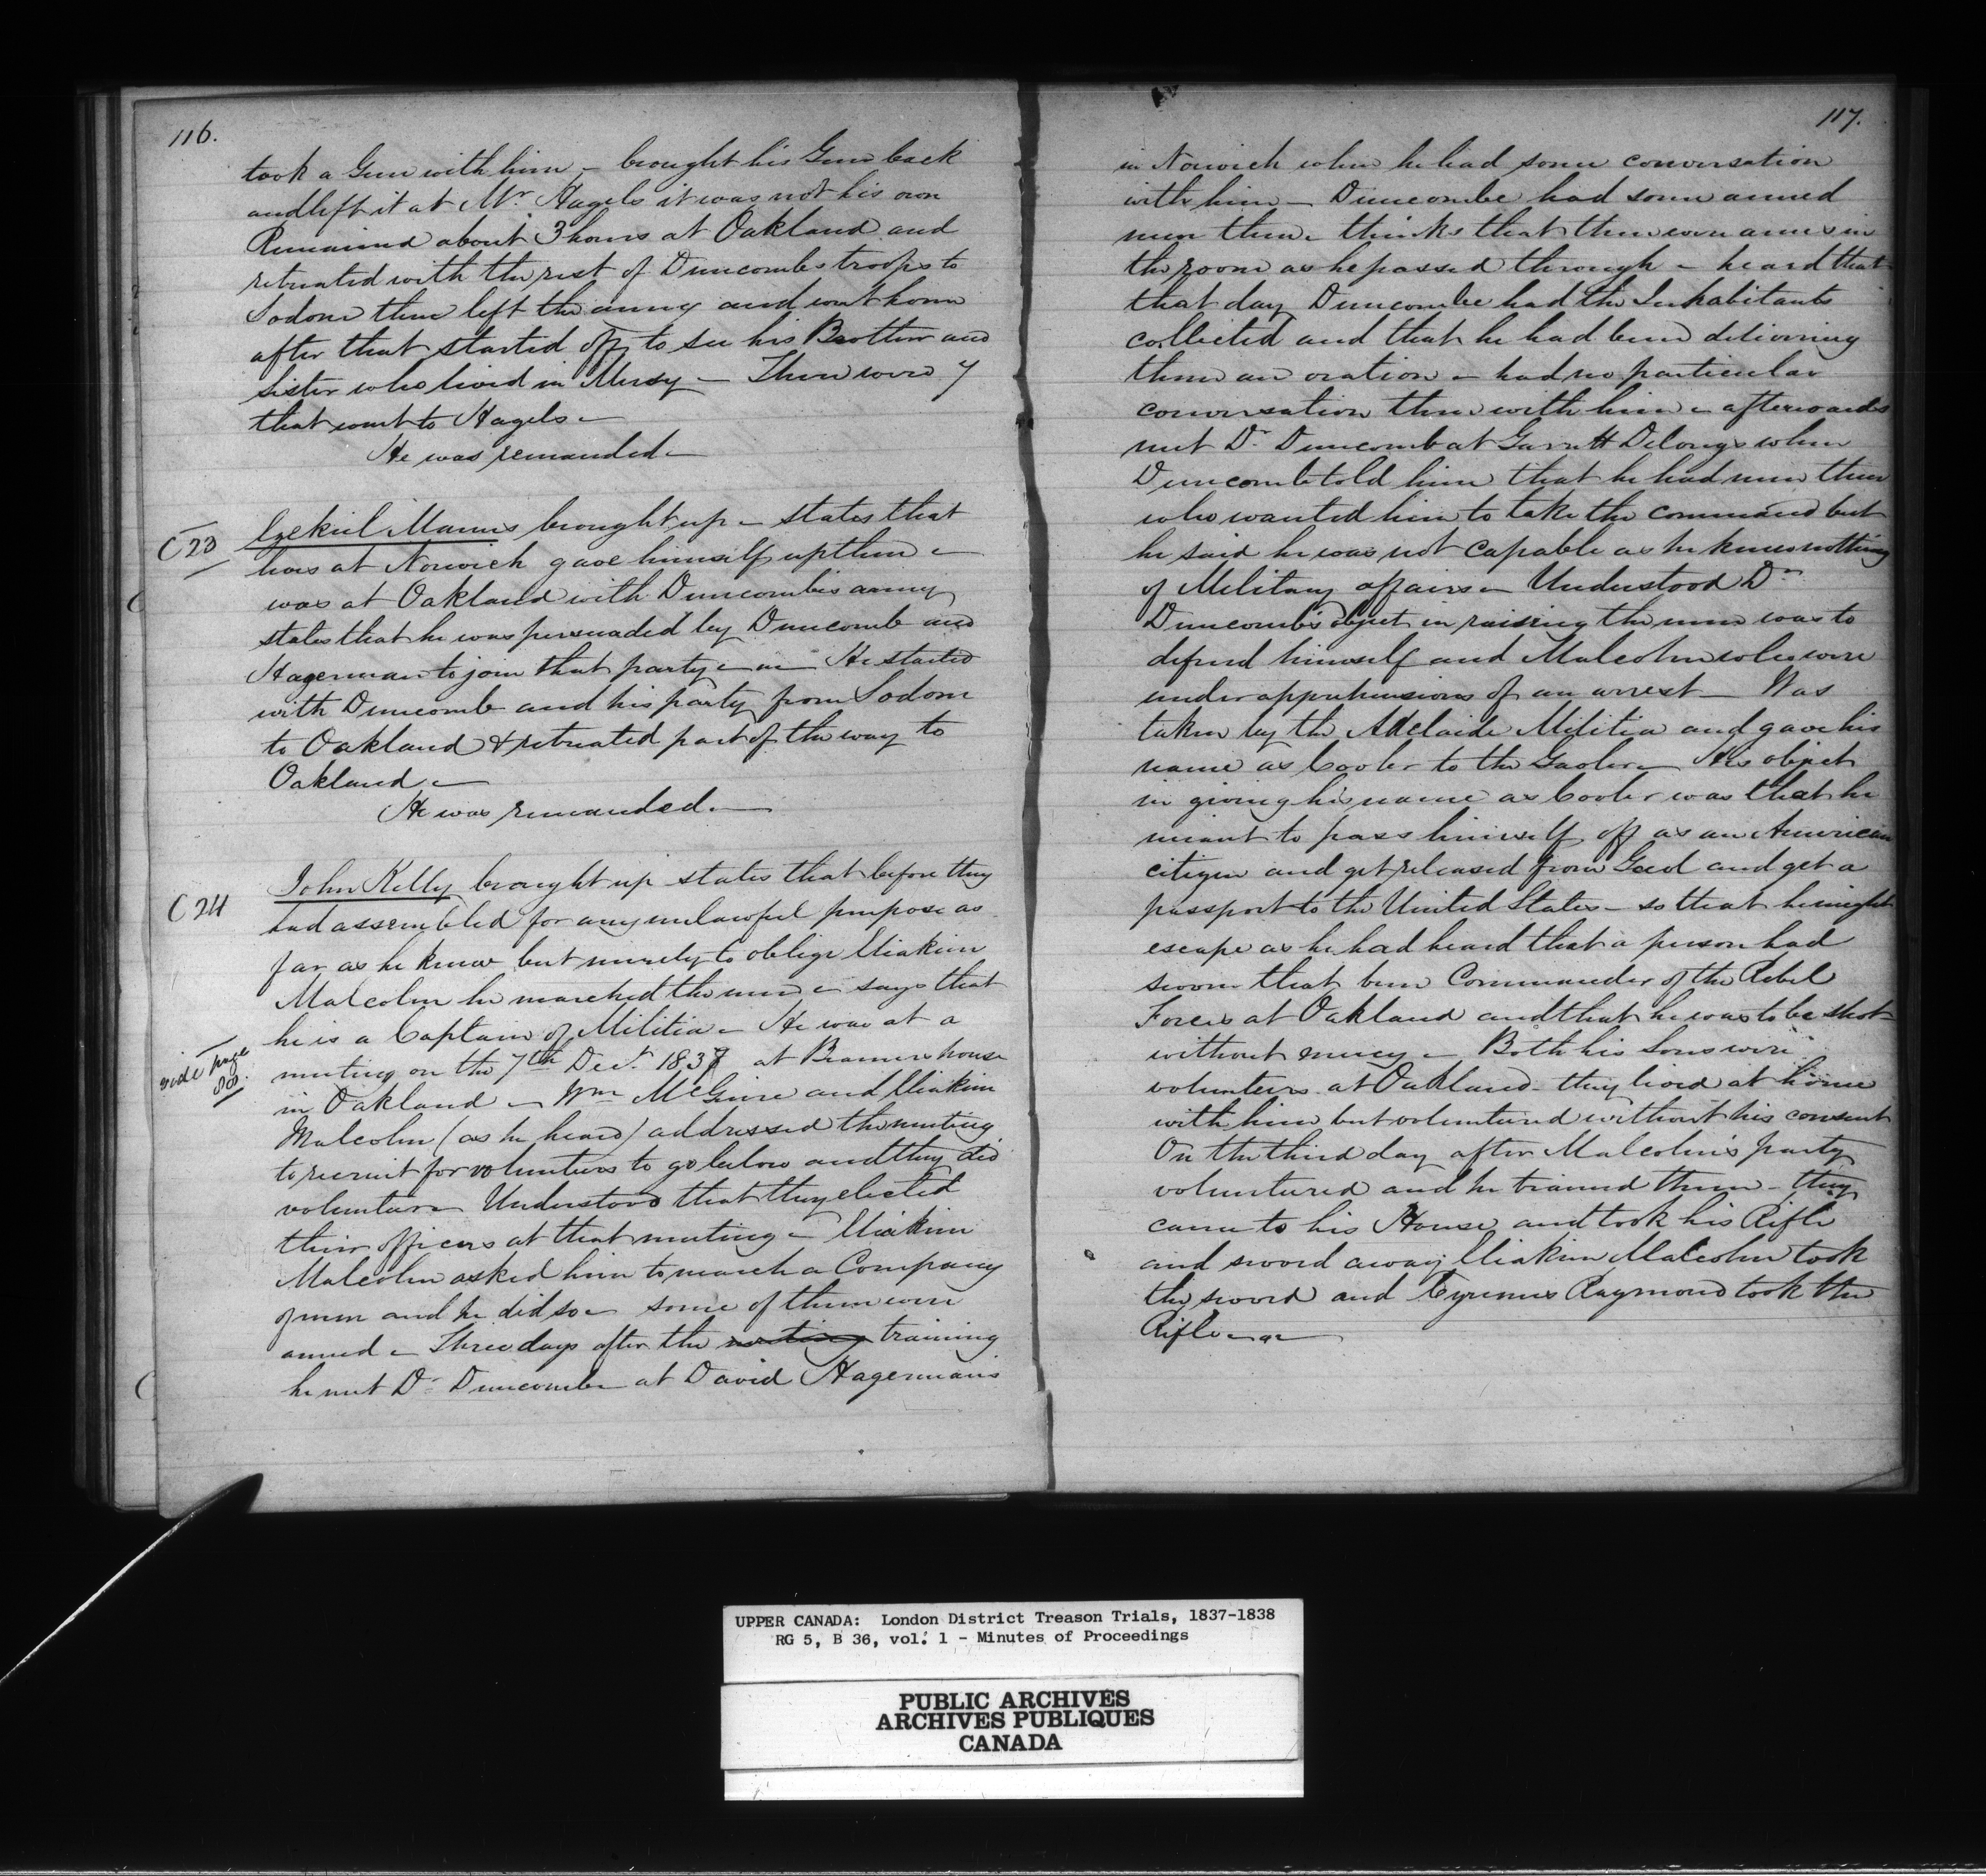 116.
took a Gun with him – brought his Gun back
and left it at Mr. Hagels it was not his own
Remained about 3 hours at Oakland and
retreated with the rest of Duncombs troops to
Sodom then left the army and went home
after that started off to see his Brother and
Sister who lived in Mersy – There were 7
that went to Hagels –
He was remanded –
C23
Ezekiel Manns brought up – states that
lives at Norwich gave himself up there –
was at Oakland with Duncombs army
states that he was persuaded by Duncomb and
Hagerman to join that party – He started
with Duncomb and his party from Sodom
to Oakland & retreated part of the way to
Oakland –
He was remanded. –
C24
John Kelly brought up states that before they
had assembled for any unlawful purpose as
far as he knew but merely to oblige Eliakim
Malcolm he marched the men – says that
he is a Captain of Militia – He was at a
vide page
88.
meeting on the 7th Decr. 1837 at Beamers house
in Oakland – Wm McGuire and Eliakim
Malcolm (as he heard) addressed the meeting
to recruit for volunteers to go below and they did
volunteer – Understood that they elected
their officers at that meeting – Eliakim
Malcolm asked him to march a Company
of men and he did so – some of them were
armed – Three days after the meeting training
he met Dr. Duncombe at David Hagermans
117.
in Norwich when he had some conversation
with him – Duncombe had some armed
men there – thinks that there were arms in
the room as he passed through – heard that
that day Duncombe had the Inhabitants
collected and that he had been delivering
them an oration – had no particular
conversation then with him – afterwards
met Dr. Duncomb at Garrett Delongs when
Duncomb told him that he had men there
who wanted him to take the command but
he said he was not capable as he knew nothing
of Military affairs – Understood Dr.
Duncomb's object in raising the men was to
defend himself and Malcolm who were
under apprehensions of an arrest – Was
taken by the Adelaide Militia and gave his
name as Cooler to the Gaoler – His object
in giving his name as Cooler was that he
meant to pass himself off as an American
citizen and get released from Gaol and get a
passport to the United States – so that he might
escape as he had heard that a person had
sworn that been Commander of the Rebel
Forces at Oakland and that he was to be shot
without mercy – Both his sons were
volunteers at Oakland – they lived at home
with him but voluntured without his consent
On the third day after Malcolm's party
voluntured and he trained them – they
came to his House and took his Rifle
and sword away Eliakim Malcolm took
the sword and Cyrenus Raymond took the
Rifle –
UPPER CANADA: London District Treason Trials, 1837-1838
RG 5, B 36, vol. 1 - Minutes of Proceedings
PUBLIC ARCHIVES
ARCHIVES PUBLIQUES
CANADA